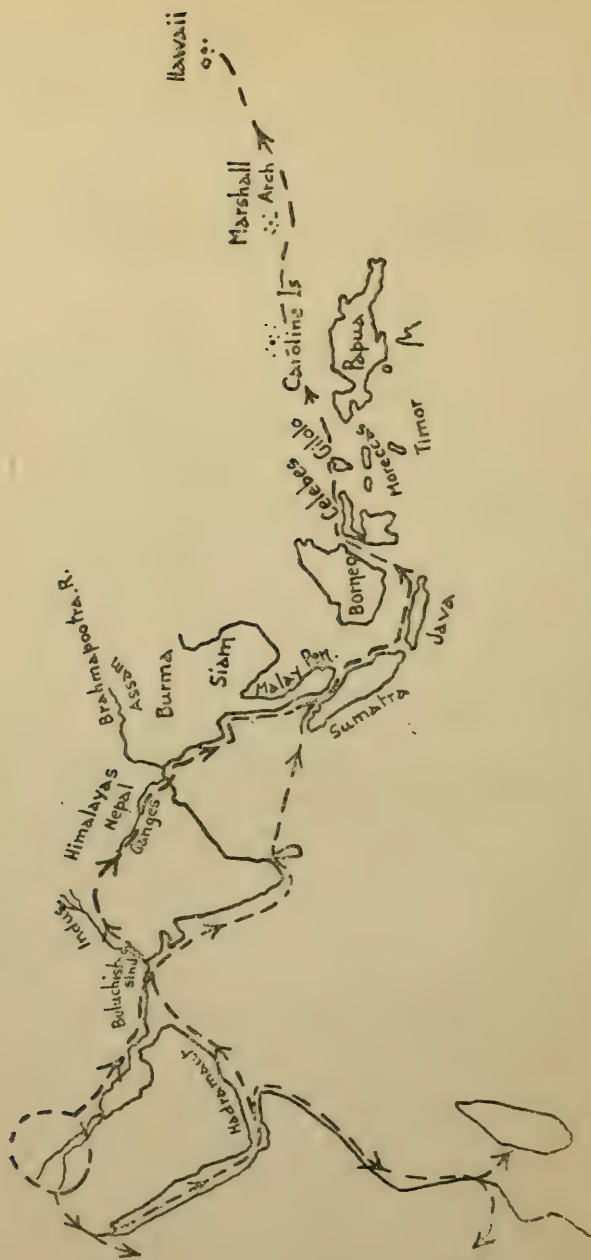 Hawaii
Marshall
Arch
Caroline Is
Papua
Gilolo
Celebes
Moreccas
Timor
Borneo
Java
Sumatra
Malay Pen.
Siam
Burma
Assam
Brahmapootra.R.
Himalayas
Nepal
Ganges
Indus
Buluchist
Sind
Hadramaut